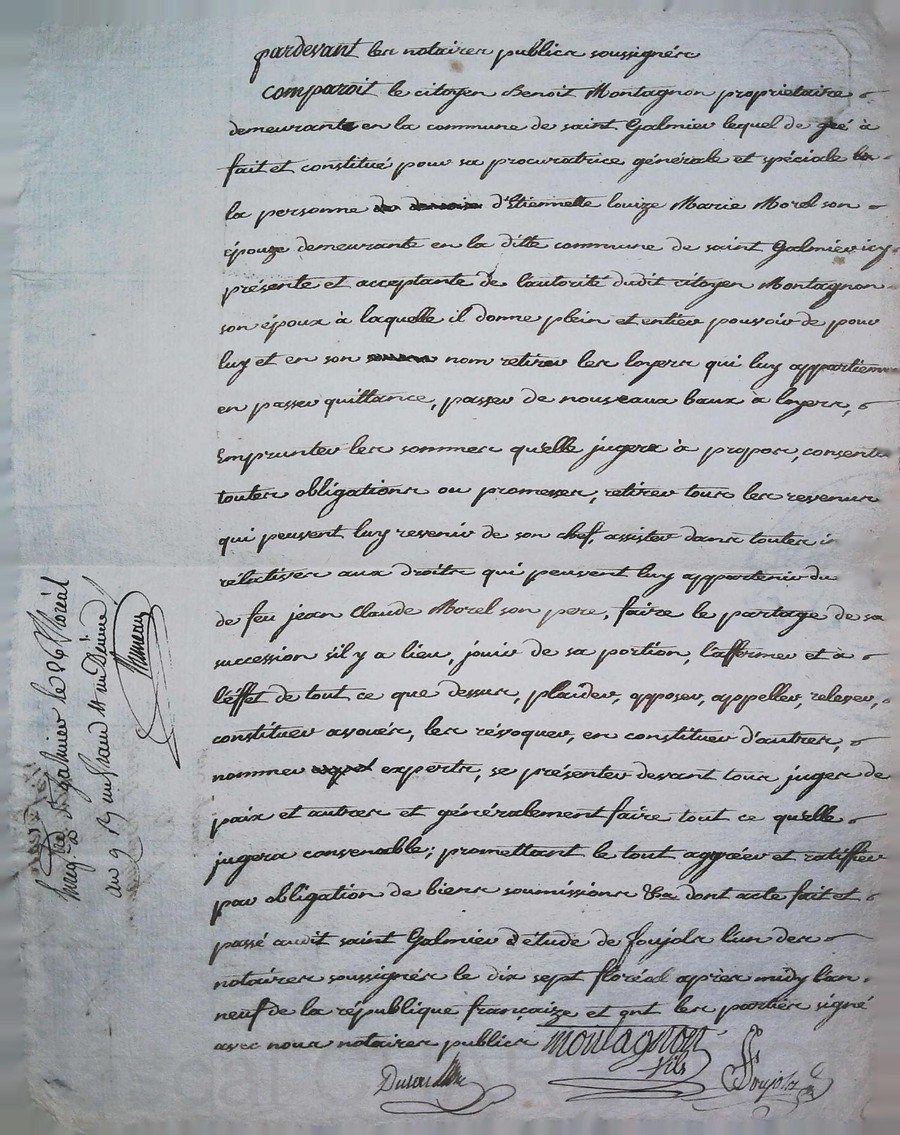 pardevant les notaires publics soussignés
comparoit le citoyen Benoit Montagnon proprietaire
demeurante en la commune de saint Galmier lequel de gré à
fait et constitué pour sa procuratrice générale et spéciale
la personne d'Etiennette louize Marie Morel son
épouze demeurante en la ditte commune de saint Galmier icy
présente et acceptante de l'autorité dudit citoyen Montagnon
son époux à laquelle il donne plein et entier pouvoir de pour
luy et en son nom retirer les loyers qui luy appartienne
en passer quittance, passer de nouveaux baux à loyers,
Emprunter les sommes qu'elle jugera à propos, consentir
toutes obligations ou promesses, retirer tous les revenus
qui peuvent luy revenir de son chef, assister dans toutes
rélatives aux droits qui peuvent luy appartenir du
de feu jean Claude Morel son pere, faire le partage de sa
succession s'il y a lieu, jouir de sa portion, l'affermer et à
l'éffet de tout ce que dessus, plaider, opposer, appeller, relever,
constituer avoués, les révoquer, en constituer d'autres,
nommer experts, se présenter devant tous juges de
paix et autres et généralement faire tout ce qu'elle
jugera convenable; promettant le tout agréer et ratiffier
par obligation de biens soumissions &a dont acte fait et
passé audit saint Galmier étude de Joujols l'un des
notaires soussignés le dix sept floréal après midy l'an
neuf de la république françaize et ont les parties signé
avec nous notaires publics montagnon
fils
Joujols
St Galmier le 26 floréal
an 9